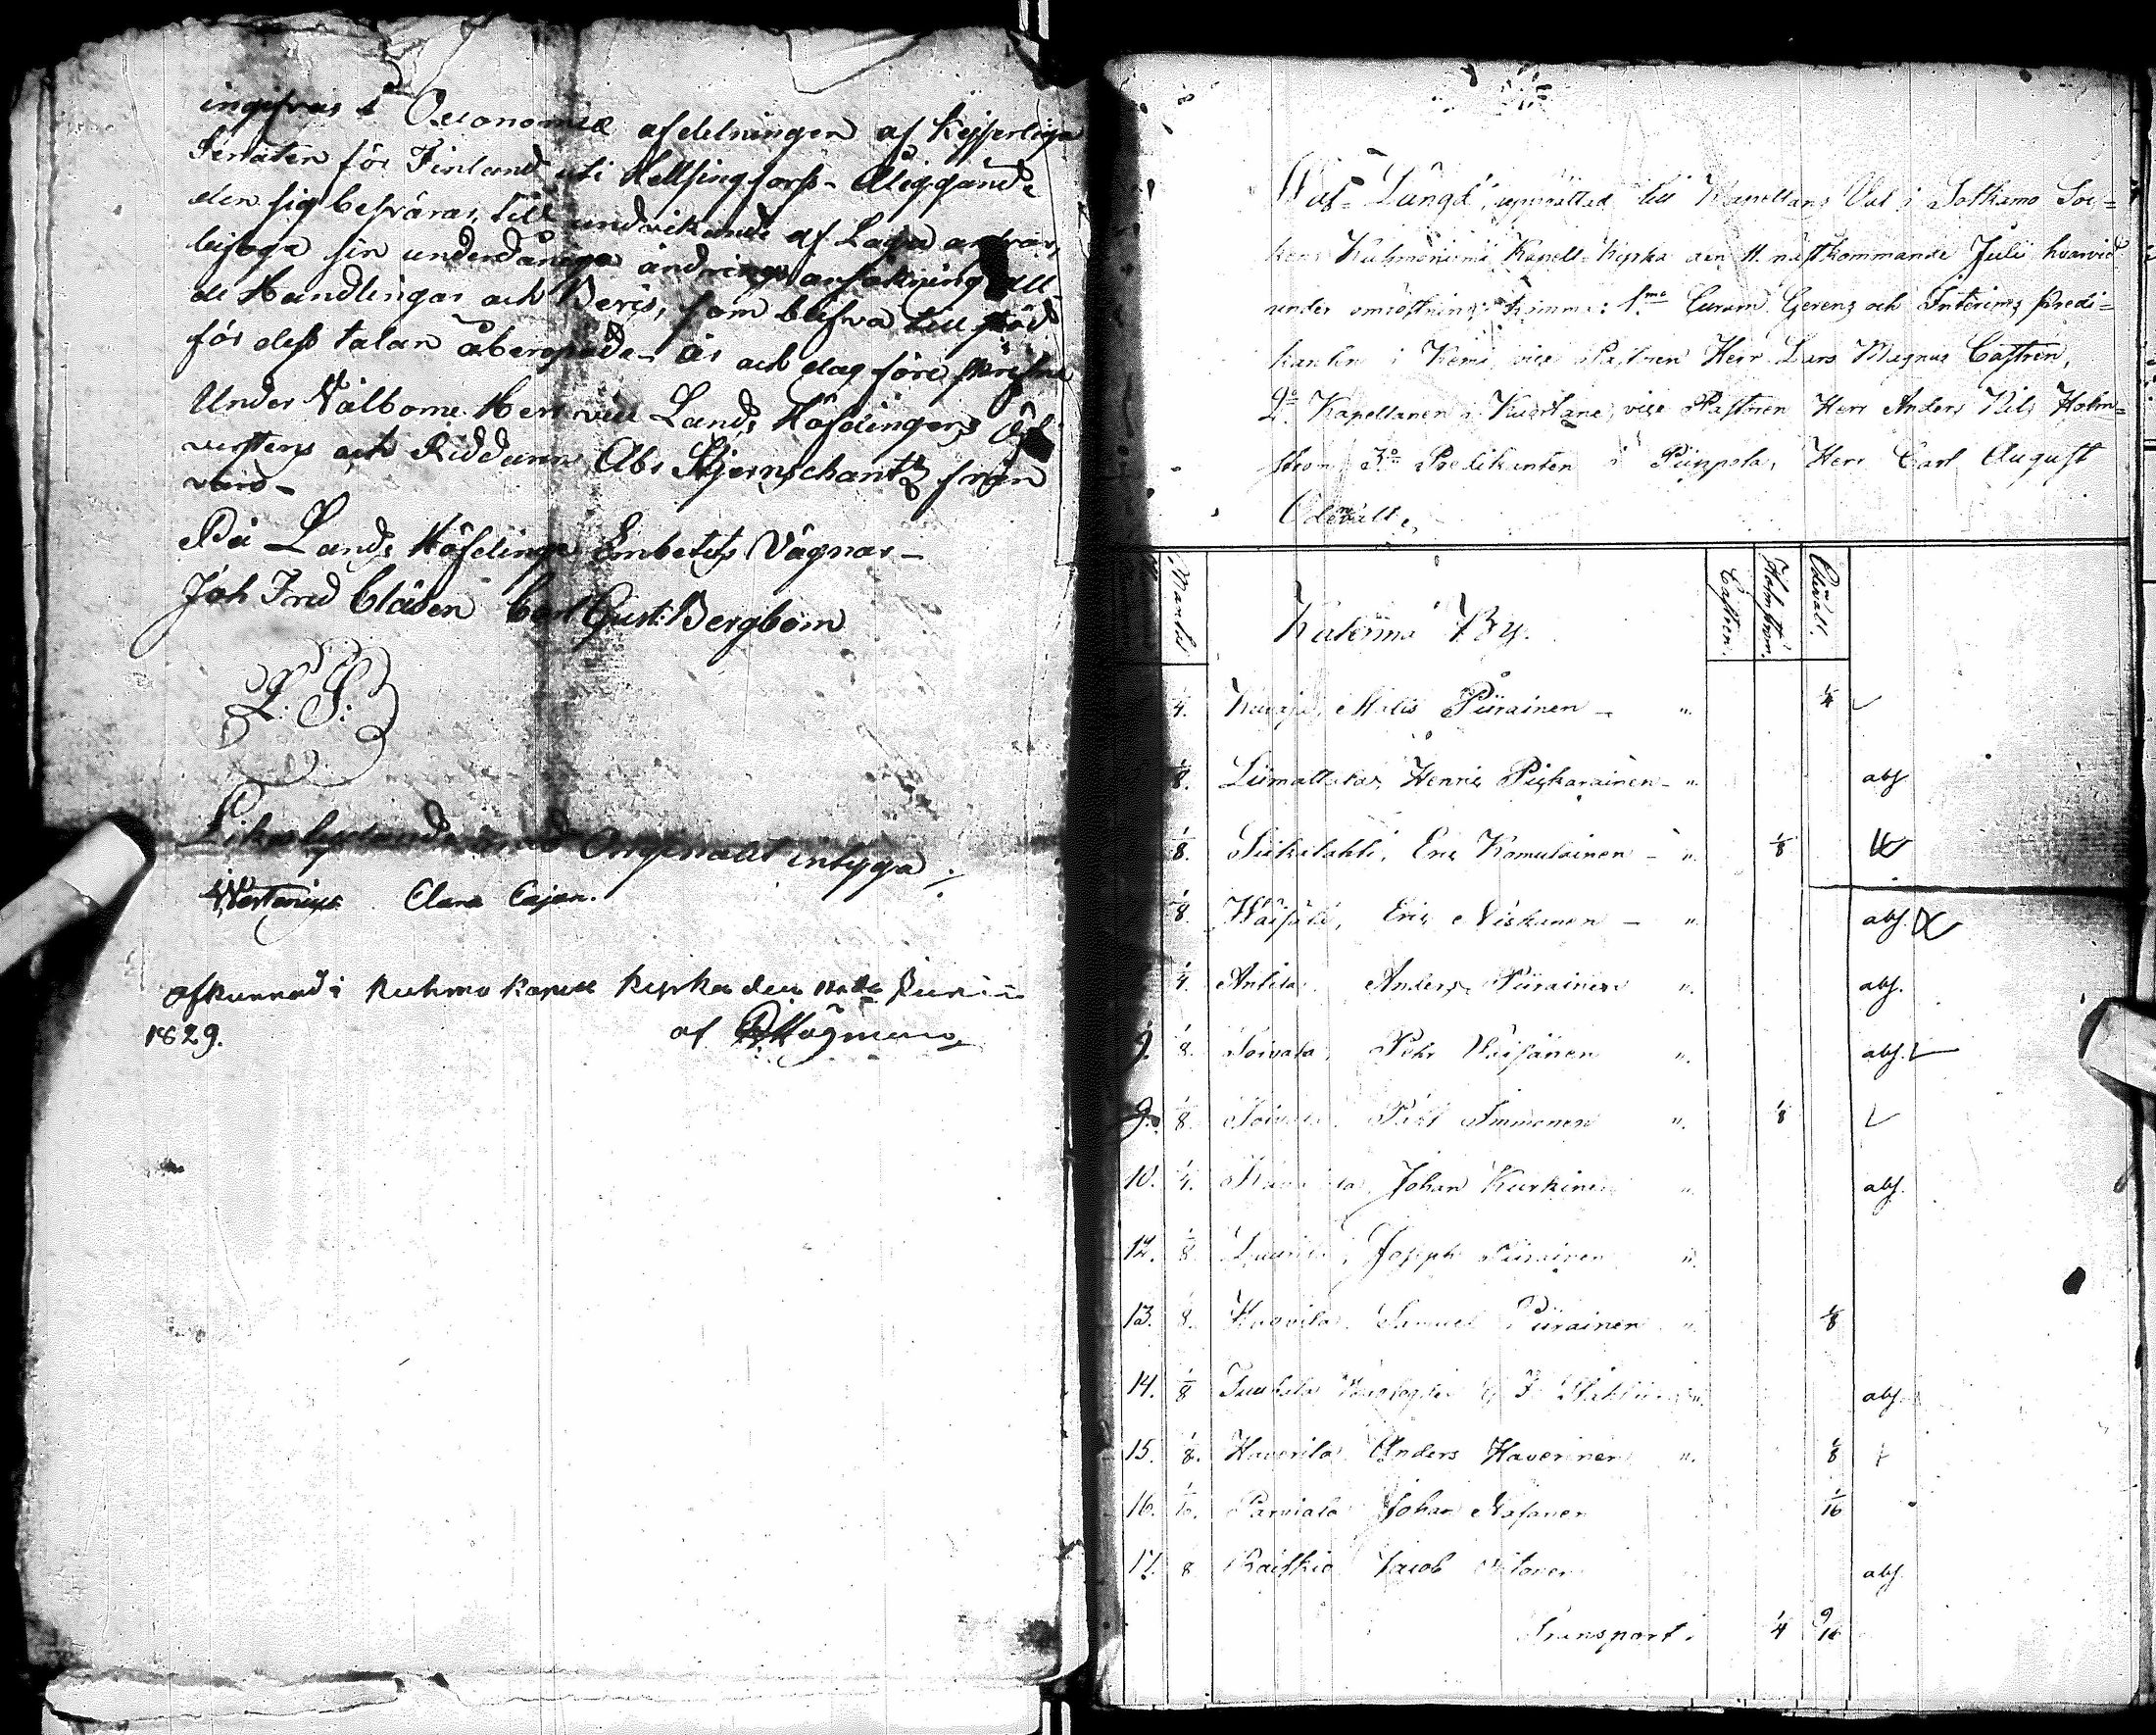 ingifvas i Oeconomiæ afdelningen af Kejserliga
Senaten för Finland uti Helsingfors - Åliggande
den sig besvärar, till undvikande af Laga answar,
bifoga sin underdåniga ändrings ansökning all
de Handlingar och Bevis, som blifva till stöd
för dess talan åberopade - År och dag före skrifne
Under Välborne Herr vice Lands Höfdingens Öf
verstens och Riddaren Abr Stjernschantz från
varo -
På Lands Höfdinge Embetets Vägnar -
Joh Fred Clásen Carl Gust: Bergbom
L. S.
Likalydande med Originalet intyga
Clara Cajan.
Afkunnad i Kuhmo Kapell Kyrka den Junii
1829. af Högman
Wal-Längd, upprättad till Kapellans Val i Sotkamo Soc=
kens Kuhmoniemi Kapell-Kyrka den 11 nästkommande Julii hvarvid
under omröstning komma: 1.mo Curam Gerens och Interims Predi=
kanten i Kemi, vice Pastoren Herr Lars Magnus Castrén,
2:o Kapellanen i Kuortane, vice Pastoren Herr Anders Nils Holm=
ström 3:o Predikanten i Piippola, Herr Carl August
Odenvall.
Mantal Katerma By. Castrén. Holmström. Odenvall.
4. Matts Piirainen - " 1/4
1/8. Henric Piskarainen - " abs
1/8. Siikalahti, Eric Komulainen - " 1/8
1/8. Wäisälä, Eric Niskanen - " abs.
1/4. Anttila, Anders Piirainen " abs.
9. 1/8. Toivola, Pehr Väisänen " abs.
9. 1/8. Påhl Immonen " 1/8
10. 1/4. Johan Kurkinen " abs.
12. 1/8. Laurila, Joseph Piirainen "
13. 8. Samuel Piirainen " 1/8
14. 1/8 abs.
15. 1/8. Haverila Anders Haverinen " 1/8
16. 1/16. Parviala Johan 1/16
17. 8 Räiskiö Jacob abs.
Transport. 1/4 9/16